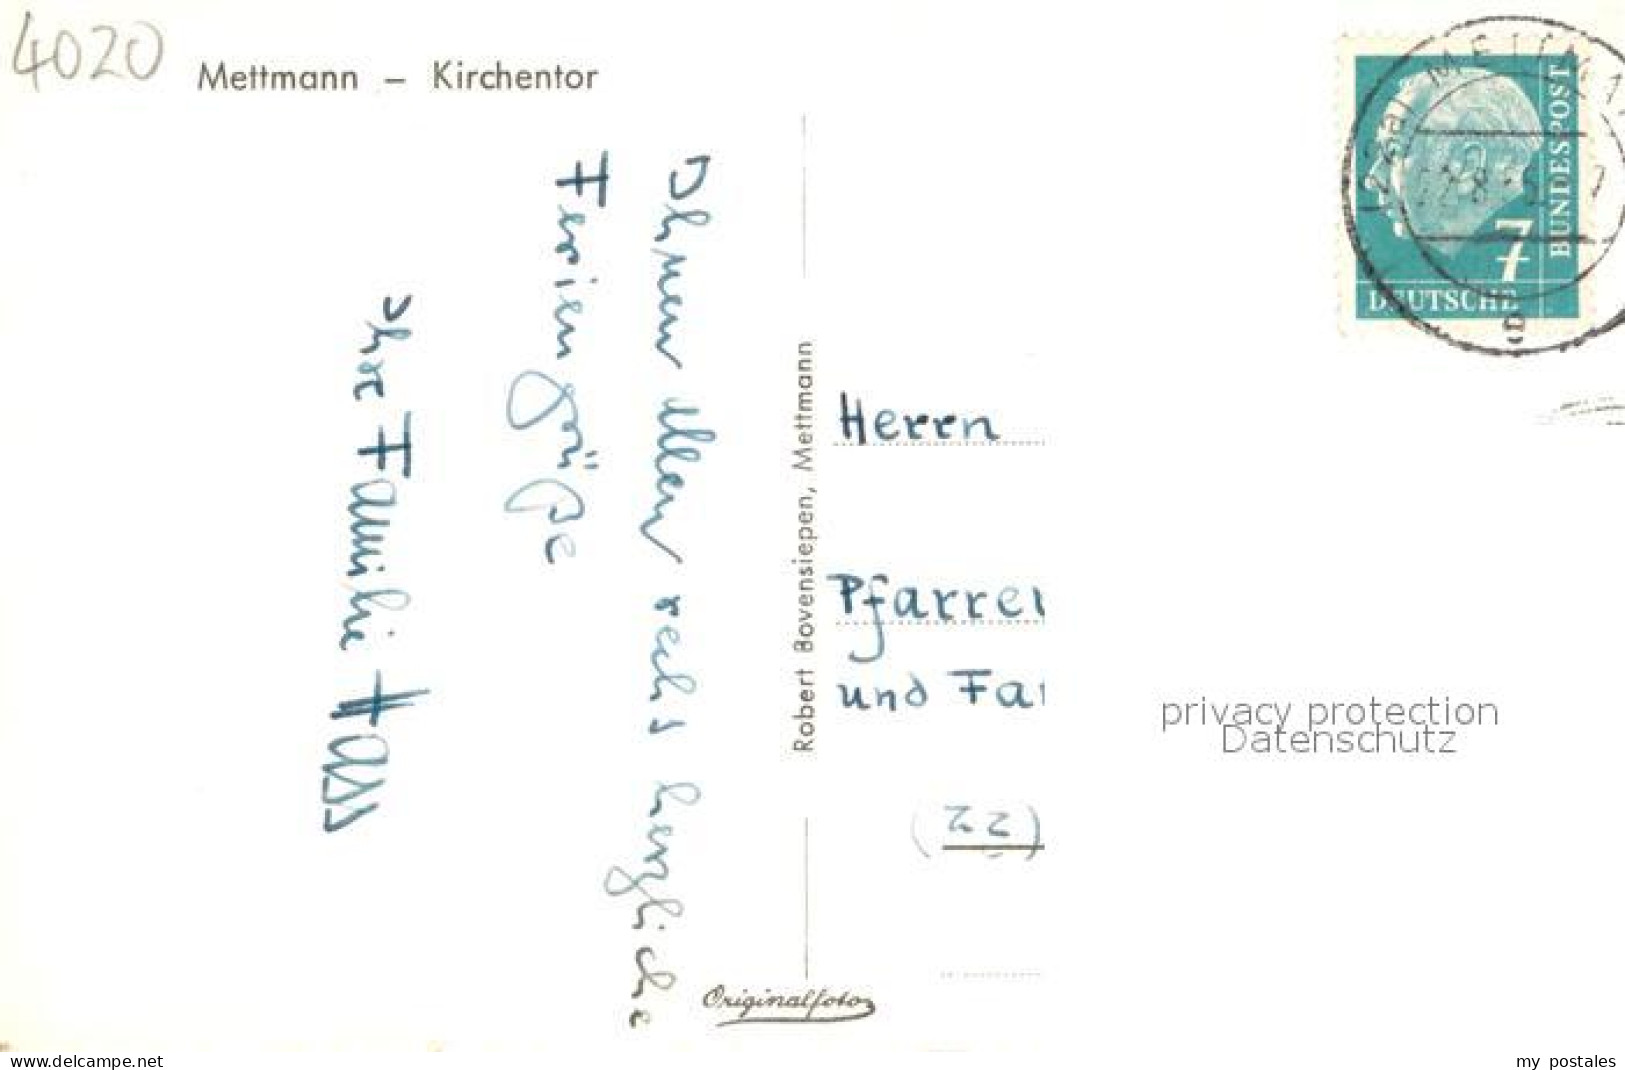 4020
Mettmann – Kirchentor
Ihnen allen recht herzliche
Feriengrüße
Ihre Familie Hass
Robert Bovensiepen, Mettmann
Originalfoto
METTMA
7
DEUTSCHE
BUNDESPOST
Herrn
Pfarrer
und Fa
(22
privacy protection
Datenschutz
www.delcampe.net
my postales